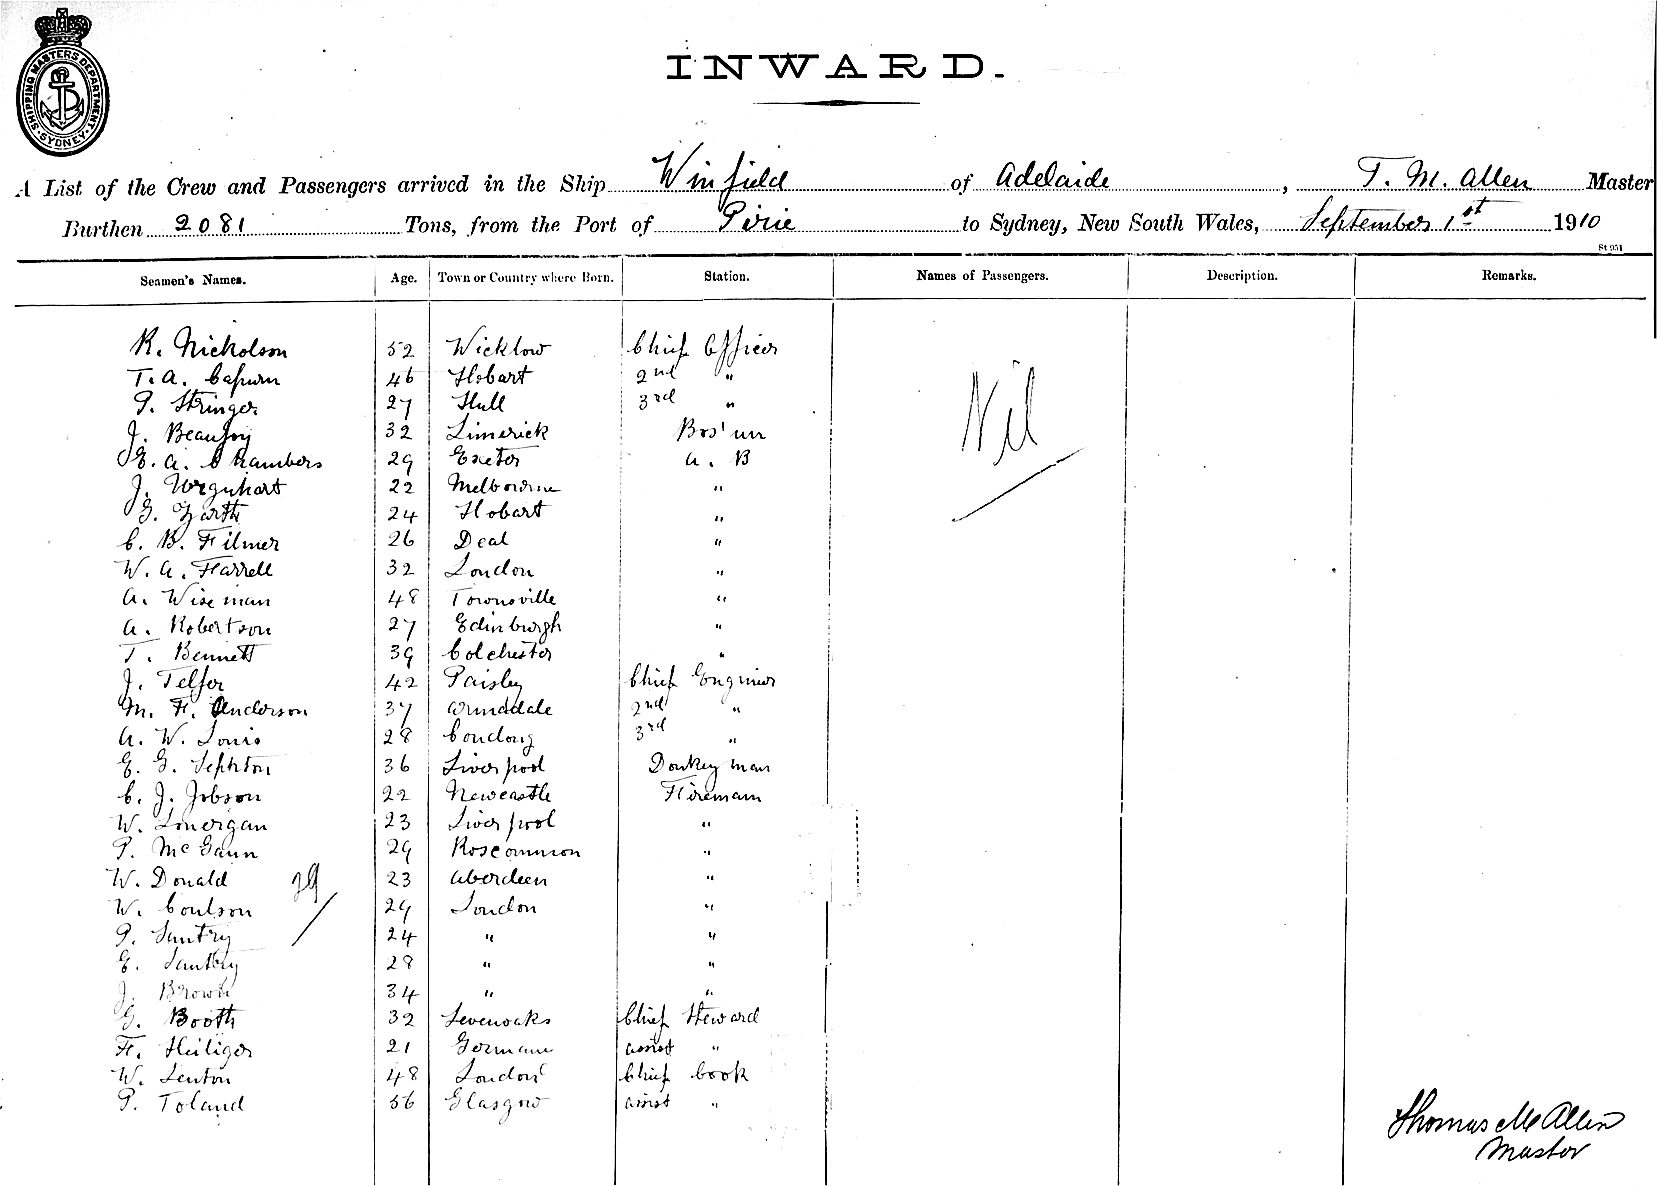 SHIPPING MASTERS DEPARTMENT. SYDNEY.
INWARD.
A List of the Crew and Passengers arrived in the Ship Winfield of Adelaide, T. M. Allen Master
Burthen 2081 Tons, from the Port of Pirie to Sydney, New South Wales, September 1st 1910
St 951
Seamen's Names. Age. Town or Country where Born. Station. Names of Passengers. Description. Remarks.
R. Nicholson 52 Wicklow Chief Officer
T. A. Capurn 46 Hobart 2nd "
P. Stringer 27 Hull 3rd "
J. Beaufoy 32 Limerick Bos'un
Nil
E. A. Chambers 29 Exeter A. B
J. Urquhart 22 Melbourne "
G. Garth 24 Hobart "
C. B. Filmer 26 Deal "
W. A. Farrell 32 London "
A. Wiseman 48 Townsville "
A. Robertson 27 Edinburgh "
T. Bennett 39 Colchester "
J. Telfer 42 Paisley Chief Engineer
M. F. Anderson 37 Arundale 2nd "
A. W. Louis 28 Condong 3rd "
E. G. Sephton 36 Liverpool Donkeyman
C. J. Jobson 22 Newcastle Fireman
W. Lonergan 23 Liverpool "
P. McGann 29 Roscommon "
W. Donald 29 23 Aberdeen "
W. Coulson 29 London "
P. Santry 24 " "
E. Santry 28 " "
J. Brown 34 " "
G. Booth 32 Sevenoaks Chief Steward
F. Heiliger 21 German assist "
W. Lenton 48 London Chief Cook
P. Toland 56 Glasgow assist "
Thomas M Allen
Master